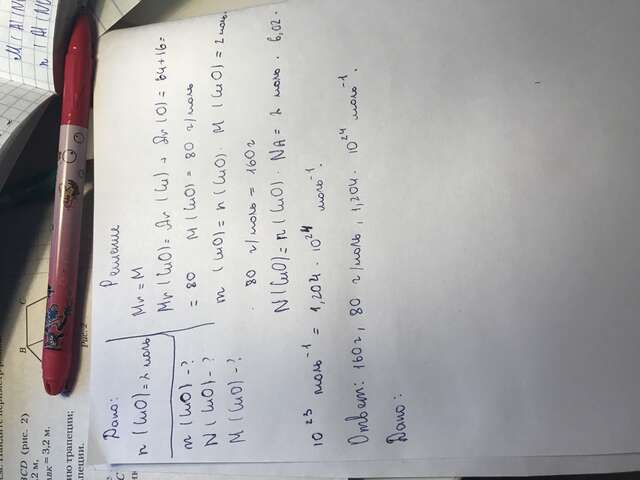 BCD (рис. 2)
2 м,
ABK = 3,2 м.
ию трапеции;
апеции.
B C
Рис. 2
M (Al(NO
n (Al(NO
Дано:
n (CuO) = 2 моль
m (CuO) - ?
N (CuO) - ?
M (CuO) - ?
Решение
Mr = M
Mr (CuO) = Ar (Cu) + Ar (O) = 64+16=
= 80 M (CuO) = 80 г/моль
m (CuO) = n (CuO) · M (CuO) = 2 моль ·
· 80 г/моль = 160 г
N (CuO) = n (CuO) · NA = 2 моль · 6,02 ·
10²³ моль⁻¹ = 1,204 · 10²⁴ моль⁻¹.
Ответ: 160 г, 80 г/моль, 1,204 · 10²⁴ моль⁻¹.
Дано: